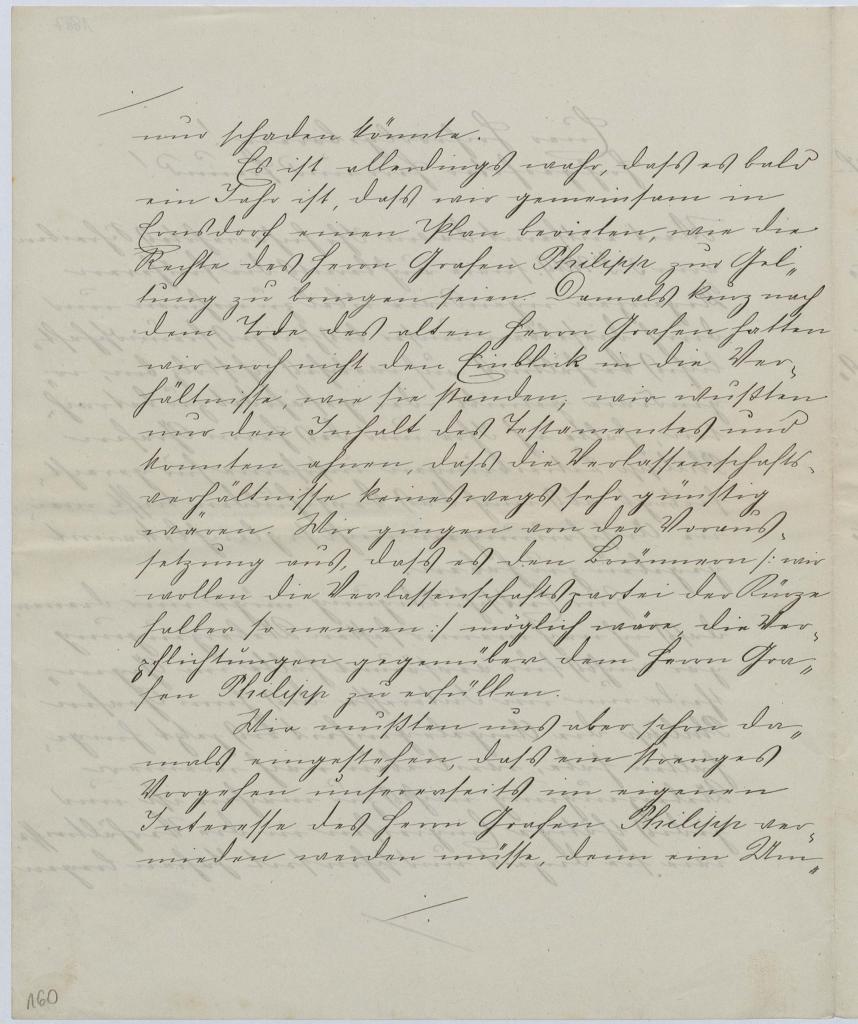 nur schaden könnte.
Es ist allerdings wahr, dass es bald
ein Jahr ist, dass wir gemeinsam in
Ernsdorf einen Plan berieten, wie die
Rechte des Herrn Grafen Philipp zur Gel„
tung zu bringen seien. Damals kurz nach
dem Tode des alten Herrn Grafen hatten
wir noch nicht den Einblick in die Ver„
hältnisse, wie sie standen, wir wußten
nur den Inhalt des Testamentes und
konnten ahnen, dass die Verlassenschafts„
verhältnisse keineswegs sehr günstig
wären. Wir gingen von der Voraus„
setzung aus, dass es den Brünnern /: wir
wollen die Verlassenschaftspartei der Kürze
halber so nennen :/ möglich wäre, die Ver„
pflichtungen gegenüber dem Herrn Gra„
fen Philipp zu erfüllen.
Wir mußten uns aber schon da„
mals eingestehen, dass ein strenges
Vorgehen unsererseits im eigenen
Interesse des Herrn Grafen Philipp ver„
mieden werden müsse, denn ein Um„
160